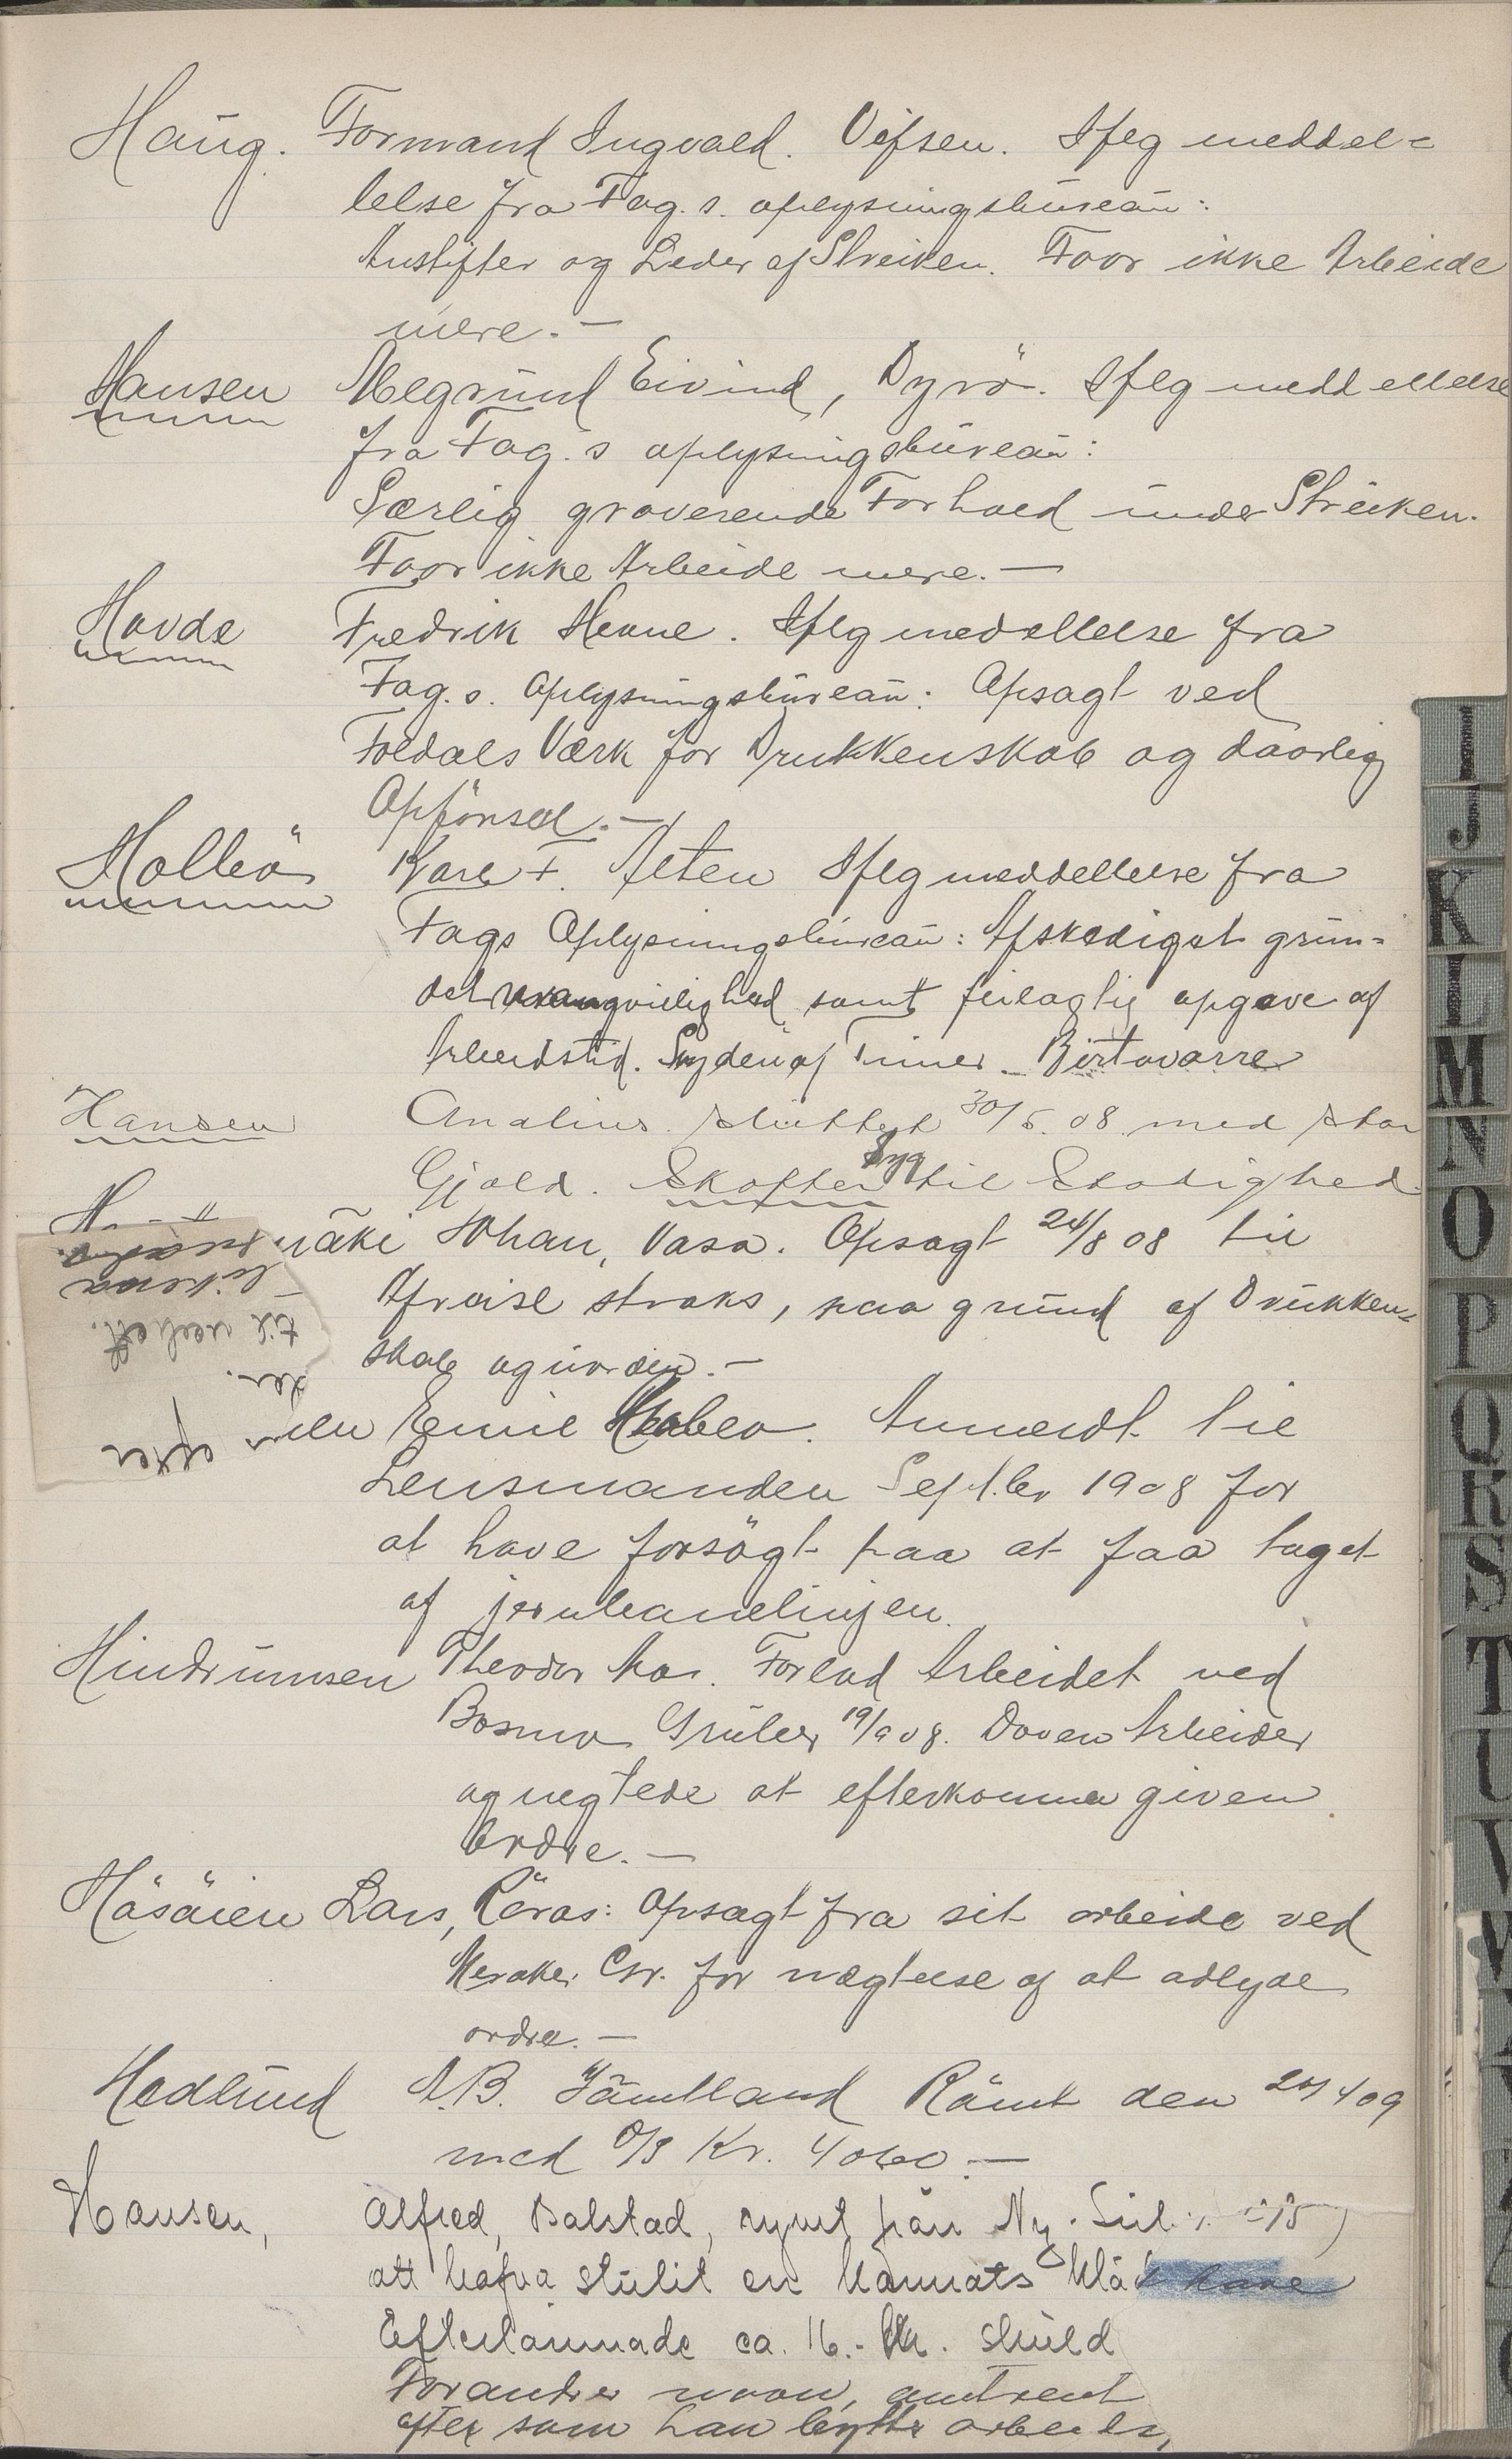 Haug. Formand Ingvald. Vefsen. Iflg meddel=
lelse fra Fag.s. oplysningsbureau:
Anstifter og Leder af Streiken. Faar ikke Arbeide
mere. —
Hansen Negrund Eivind, Dyrö. Iflg meddellelse
fra Fag.s oplysningsbureau:
Særlig graverende Forhold under Streiken.
Faar ikke Arbeide mere. —
Hovde Fredrik Hevne. Iflg meddellelse fra
Fag.s. Oplysningsbureau: Opsagt ved
Foldals Værk for Drukkenskab og daarlig
Opförsel. —
Molleö Karl F. Alten Iflg meddellelse fra
Fags Oplysningsbureau: Afskediget grun=
det uvangvillighed samt feilagtig opgave af
Arbeidstid. Snyderi af Timer _ Birtavarre
Hansen Analius. sluttet 30/5.08. med stor
Gjæld. Skofter Syg til Stadighed
mäki Johan, Vasa. Opsagt 24/8 08 til
Afreise straks, paa grund af Drukken=
skab og uorden. —
til
efter
sen Emil Anmeldt til
Lensmanden Septbr 1908 for
at have forsögt paa at faa taget
af jernhandlingen.
Hindrumsen Theodor Mo. Forlod Arbeidet ved
Bosmo Gruber 19/9 08. Doven Arbeider
og negtede at efterkomme given
Ordre. —
Håsåien Lars, Röros: Opsagt fra sit arbeide ved
Meraker Gr. for nægtelse af at adlyde
ordre. —
Hedlund A.B. Jämtland Rämt den 20/4 09
med % Kr. 40.60. —
Hansen, Alfred, Balstad, rymt från Ny-Sul.
att hafva stulit en kamrats
Efterlämnade ca. 16.- Kr. skuld
Forandrer navn, omtrent
efter som han bytter arbeide,
I
J
K
L
M
N
O
P
Q
R
S
T
U
V
W